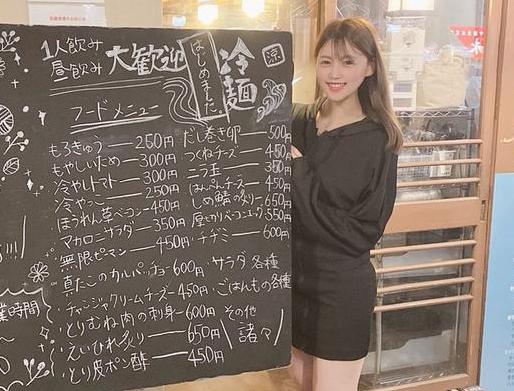 1人飲み
昼飲み
大歓迎
はじめました
冷麺
涼
フードメニュー
もろきゅう 250円
もやしいため 300円
冷やしトマト 300円
冷やっこ 250円
ほうれん草ベーコン 450円
マカロニサラダ 350円
無限ピーマン 450円
真たこのカルパッチョ 600円
チャンジャクリームチーズ 450円
とりむね肉の刺身 600円
えいひれ炙り 650円
とり皮ポン酢 450円
だし巻き卵 500円
つくねチーズ 450円
ニラ玉 350円
はんぺんチーズ 450円
しめ鯖の炙り 650円
厚切りベーコンエッグ 550円
チヂミ 600円
サラダ各種
ごはんもの各種
その他
諸々
業時間